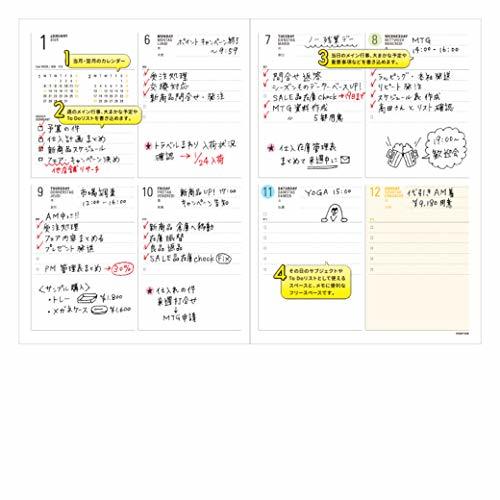 1 JANUARY
1 当月・翌月のカレンダー
2 週のメイン行事、大まかな予定や
To Doリストを書き込めます。
予算の件
仕入計画まとめ
新商品スケジュール
フェア・キャンペーン決め
他店舗リサーチ
6 MONDAY
ポイントキャンペーン終了
〜9:59
受注処理
交換対応
新商品問合せ・発注
★トラベルまわり入荷状況
確認 → 1/24入荷
7 TUESDAY
ノー残業デー
3 当日のメイン行事、大まかな予定や
重要事項などを書き込めます。
問合せ返答
シーズンものデータベースUP!
SALE品在庫check → 19日まで
MTG資料作成
5部用意
★仕入在庫管理表
まとめて来週中に
8 WEDNESDAY
MTG
14:00 - 16:00
ラッピング・本社発送
リピート発注
スケジュール表作成
高田さんとリスト確認
19:00〜
歓迎会
9 THURSDAY
市場調査
12:00 - 16:00
AM中に!!
受注処理
フェア内容まとめる
プレゼント発送
PM 管理表まとめ → 30%
<サンプル購入>
・トレー ¥1,800
・メガネケース ¥1,600
10 FRIDAY
新商品UP! 17:00
キャンペーン告知
新商品 倉庫へ移動
在庫振替
良品返品
SALE品在庫check FIX
★仕入れの件
来週打合せ
↓
MTG申請
11 SATURDAY
YOGA 15:00
4 その日のサブジェクトや
To Doリストとして使える
スペースと、メモに便利な
フリースペースです。
12 SUNDAY
代引きAM着
¥9,180用意